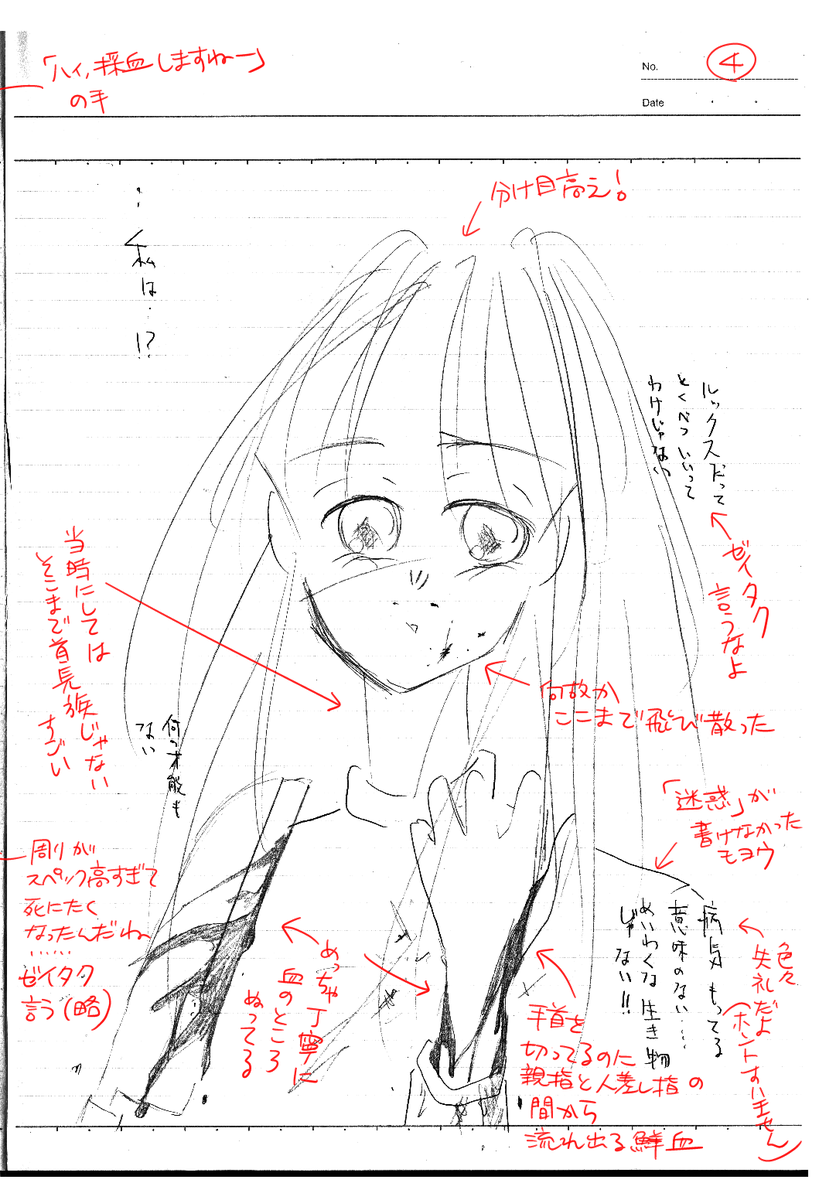 「ハイ,採血しますねー」
の手
No.
④
Date
分け目高え!
…私は…!?
ルックスだって
とくべついいって
わけじゃない
ゼイタク
言うなよ
当時にしては
そこまで首長族じゃない
すごい
何故か
ここまで飛び散った
何つ才能も
ない
「迷惑」が
書けなかった
モヨウ
彫りが
スペック高すぎて
死にたく
なったんだね
……
ゼイタク
言う(略)
めっちゃ丁寧に
血のところ
ぬってる
病気もってる
意味のない……
めいわくな生き物
じゃない!!
色々
失礼だよ
(ホントすいません)
手首を
切ってるのに
親指と人差し指の
間から
流れ出る鮮血